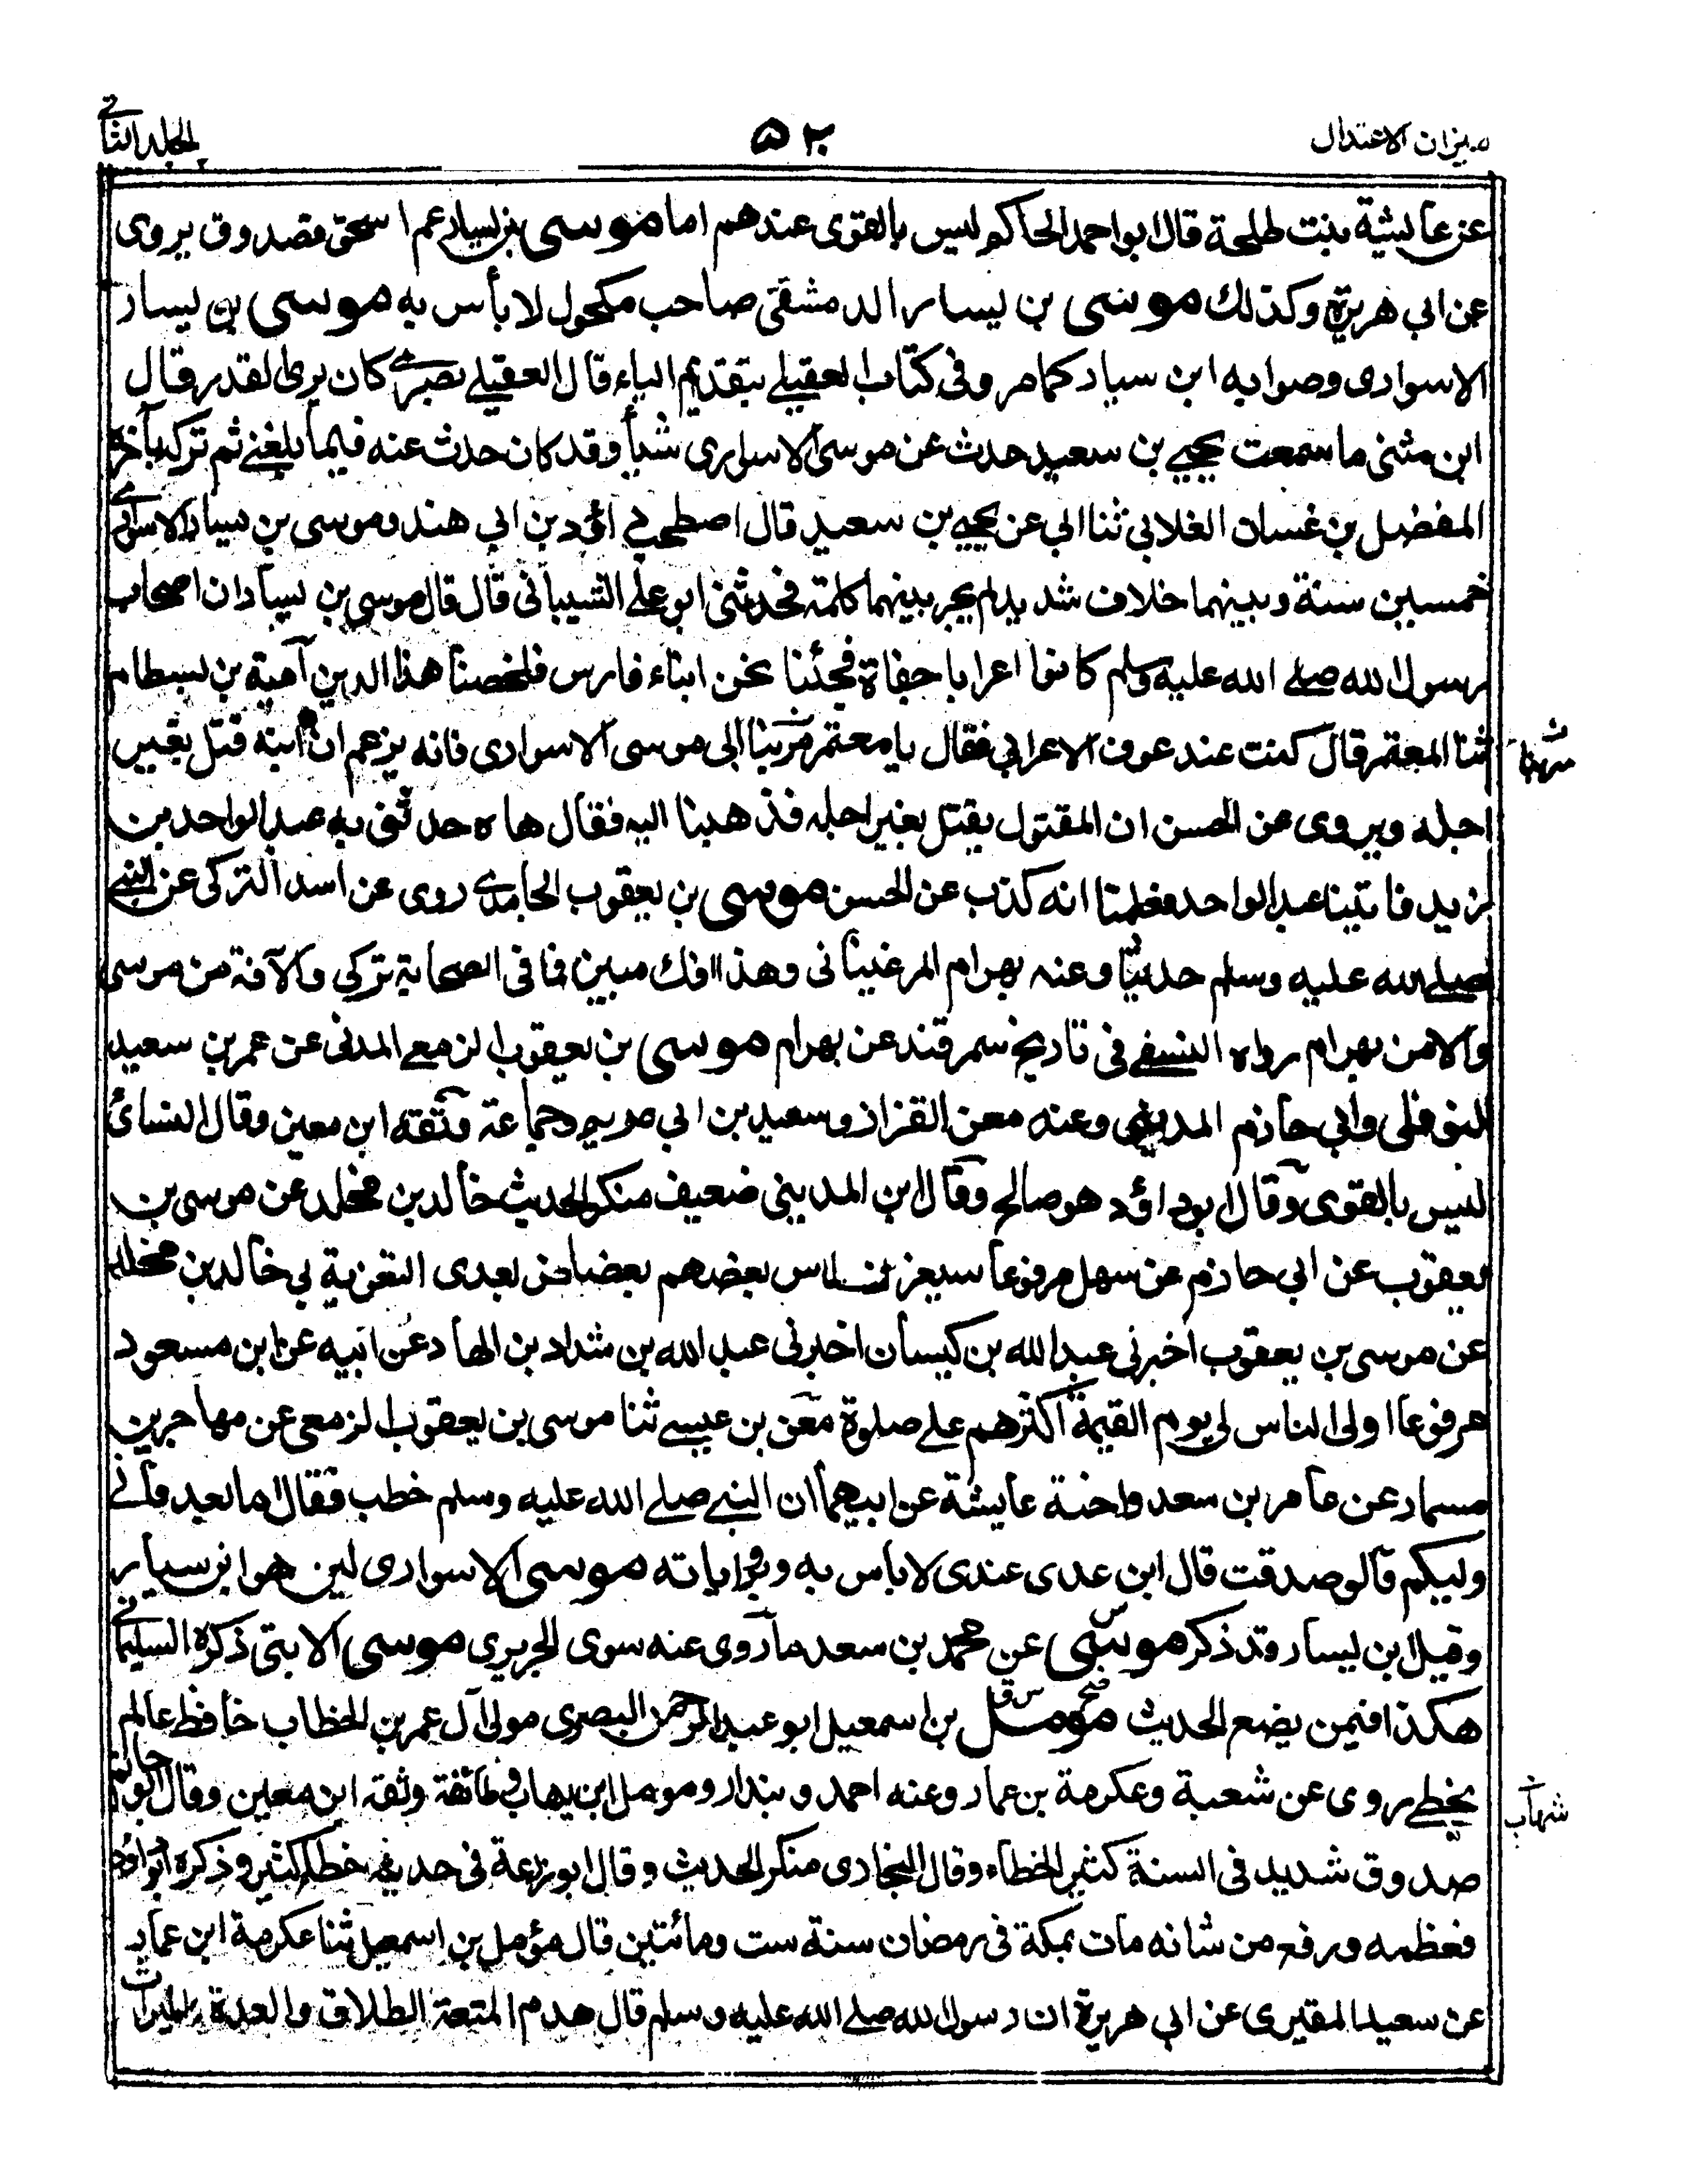 ميزان الاعتدال
٥٢٠
الجلد الثاني
عن عايشة بنت طلحة قال ابو احمد الحاكم ليس بالقوى عندهم اما موسى بن يسار عم اسحق فصدوق يروى
عن ابي هريرة وكذلك موسى بن يسار الدمشقى صاحب مكحول لا بأس به موسى بن يسار
الاسوارى وصوابه ابن سيار كما مر وفى كتاب العقيلے بتقديم الياء قال العقيلے بصرے كان يرى القدر قال
ابن مثنى ما سمعت يحيے بن سعيد حدث عن موسى الاسوارى شيأ وقد كان حدث عنه فيما بلغنے ثم تركه بآخره
المفضل بن غسان الغلابي ثنا ابي عن يحيے بن سعيد قال اصطحب داؤد بن ابي هند وموسى بن سيار الاسوارے
خمسين سنة وبينهما خلاف شديد لم يجر بينهما كلمة فحدثنى ابو علے الشيبانى قال قال موسى بن يسار ان اصحاب
رسول الله صلے الله عليه وسلم كانوا اعرابا جفاة فجئنا نحن ابناء فارس فلخصنا هذا الدين آمية بن بسطام
ثنا المعتمر قال كنت عند عوف الاعرابي فقال يا معتمر مر بنا الى موسى الاسوارى فانه يزعم ان ابنه قتل بغير
اجله ويروى عن الحسن ان المقتول يقتل بغير اجله فذهبنا اليه فقال هاه حدثنى به عبد الواحد بن
زيد فاتينا عبد الواحد فعلمنا انه كذب عن الحسن موسى بن يعقوب الحامدے روى عن اسد التركى عن النبے
صلے الله عليه وسلم حديثا وعنه بهرام المرغينانى وهذا افك مبين فما فى الصحابة تركى والآفة من موسى
والا من بهرام رواه النسفے فى تاريخ سمرقند عن بهرام موسى بن يعقوب الزمعے المدنى عن عمر بن سعيد
النوفلى وابي حازم المدينى وعنه معن القزاز وسعيد بن ابي مريم وجماعة وثقه ابن معين وقال النسائ
ليس بالقوى وقال ابو داؤد هو صالح وقال ابن المدينى ضعيف منكر الحديث خالد بن مخلد عن موسى بن
يعقوب عن ابي حازم عن سهل مرفوعا سيعزى الناس بعضهم بعضا من بعدى التعزية بي خالد بن مخلد
عن موسى بن يعقوب اخبرنى عبد الله بن كيسان اخبرنى عبد الله بن شداد بن الهاد عن ابيه عن ابن مسعود
مرفوعا اولى الناس لى يوم القيمة اكثرهم علے صلوة معن بن عيسے ثنا موسى بن يعقوب الزمعى عن مهاجر بن
مسمار عن عامر بن سعد واخته عايشة عن ابيهما ان النبے صلے الله عليه وسلم خطب فقال اما بعد فانے
وليكم قالو صدقت قال ابن عدى عندى لا باس به وبرواياته موسى الاسوارى لين هو ابن سيار
وقيل ابن يسار وقد ذكر موسى عن محمد بن سعد ما روى عنه سوى الجريرى موسى الابتى ذكره السليمانے
هكذا فيمن يضع الحديث مؤمل بن اسمعيل ابو عبد الرحمن البصرى مولى آل عمر بن الخطاب حافظ عالم
يخطے روى عن شعبة وعكرمة بن عمار وعنه احمد وبندار ومومل ابن يهاب وطائفة وثقه ابن معين وقال ابو حاتم
صدوق شديد فى السنة كثير الخطاء وقال البخارى منكر الحديث وقال ابو زرعة فى حديثه خطأ كثير وذكره ابو داؤد
فعظمه ورفع من شانه مات بمكة فى رمضان سنة ست ومائتين قال مؤمل بن اسمعيل ثنا عكرمة ابن عمار
عن سعيد المقبرى عن ابي هريرة ان رسول الله صلے الله عليه وسلم قال هدم المتعة الطلاق والعدة والميراث
شهاب